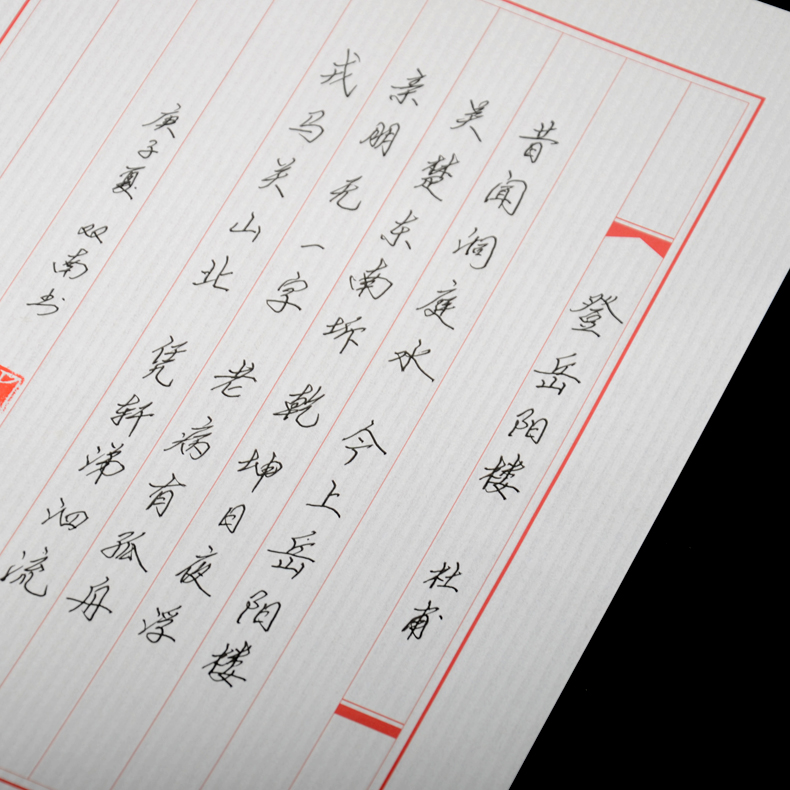 登岳阳楼 杜甫
昔闻洞庭水 今上岳阳楼
吴楚东南坼 乾坤日夜浮
亲朋无一字 老病有孤舟
戎马关山北 凭轩涕泗流
庚子夏 双南书